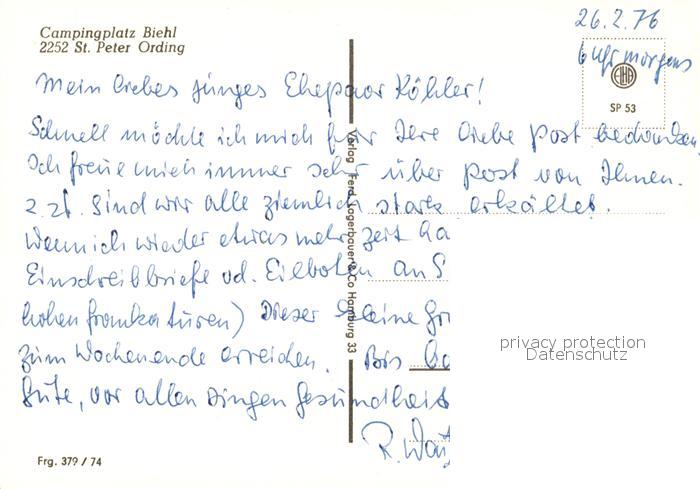 Campingplatz Biehl
2252 St. Peter Ording
26.2.76
6 Uhr morgens
EHA
SP 53
Mein liebes junges Ehepaar Köhler!
Schnell möchte ich mich für Ihre liebe Post bedanken
Ich freue mich immer sehr über Post von Ihnen.
z.Zt. sind wir alle ziemlich stark erkältet.
Wenn ich wieder etwas mehr Zeit ha
Einschreibbriefe od. Eilboten an S
hohen Frankaturen) Dieser kleine Gr
zum Wochenende erreichen. Bis ba
Gute, vor allen Dingen Gesundheit
R. Wa
Verlag Ferd. Lagerbauer & Co Hamburg 33
privacy protection
Datenschutz
Frg. 379 / 74